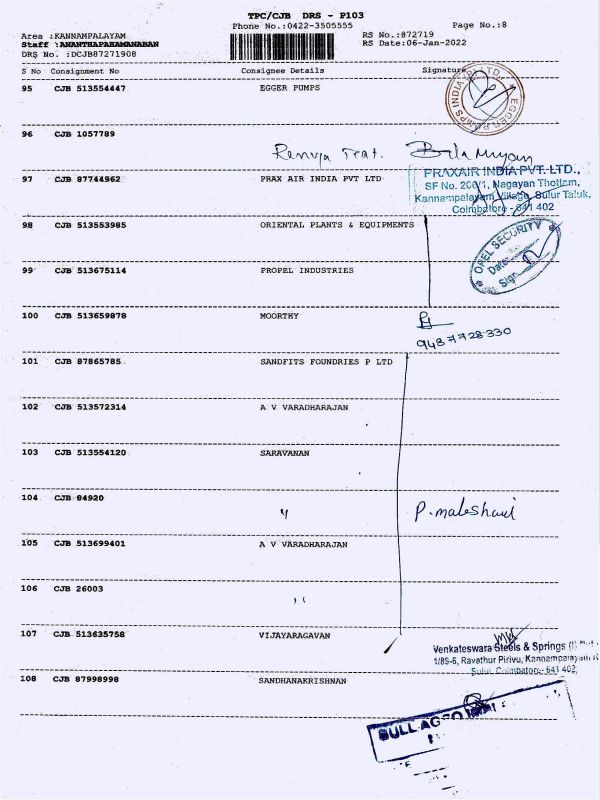 TPC/CJB DRS - P103
Phone No.:0422-3505555 Page No.:8
Area :KANNAMPALAYAM RS No.:872719
Staff :ANANTHAPAHAMANABAN RS Date:06-Jan-2022
DRS No. :DCJB87271908
S No Consignment No Consignee Details Signature
95 CJB 513554447 EGGER PUMPS
EGGER PUMPS INDIA P LTD.
96 CJB 1057789
97 CJB 87744962 PRAX AIR INDIA PVT LTD
PRAXAIR INDIA PVT. LTD.,
SF No. 200/1, Nagayan Thottam,
Kannampalayam Village, Sulur Taluk,
Coimbatore - 641 402
98 CJB 513553985 ORIENTAL PLANTS & EQUIPMENTS
OPEL SECURITY
Date:
Sign
99 CJB 513675114 PROPEL INDUSTRIES
100 CJB 513659878 MOORTHY
9487728330
101 CJB 87865785 SANDFITS FOUNDRIES P LTD
102 CJB 513572314 A V VARADHARAJAN
103 CJB 513554120 SARAVANAN
104 CJB 84920 〃 P. maheshwari
105 CJB 513699401 A V VARADHARAJAN
106 CJB 26003 〃
107 CJB 513635758 VIJAYARAGAVAN
Venkateswara Steels & Springs (I)
1/89-6, Ravathur Pirivu, Kannampalayam
Sulur, Coimbatore- 641 402
108 CJB 87998998 SANDHANAKRISHNAN
BULL AG